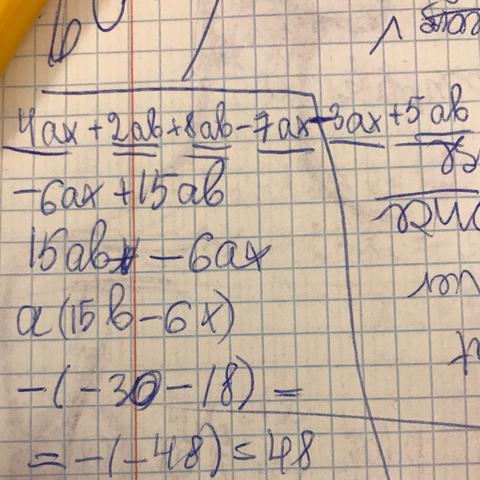 4ax + 2ab + 8ab - 7ax - 3ax + 5ab
-6ax + 15ab
15ab - 6ax
a(15b - 6x)
-(-30 - 18) =
= -(-48) = 48